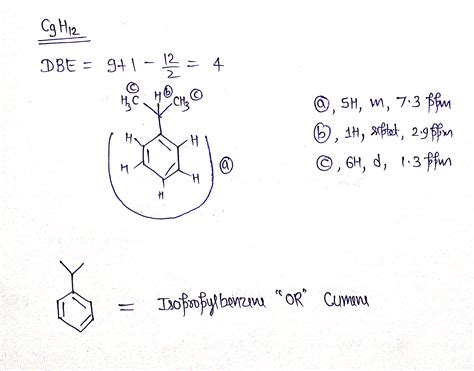 C9H12
DBE = 9+1 - 12/2 = 4
ⓒ H3C H ⓑ CH3 ⓒ
H H
H H
H
ⓐ
ⓐ, 5H, m, 7.3 ppm
ⓑ, 1H, septet, 2.9 ppm
ⓒ, 6H, d, 1.3 ppm
= Isopropylbenzene "OR" Cumene